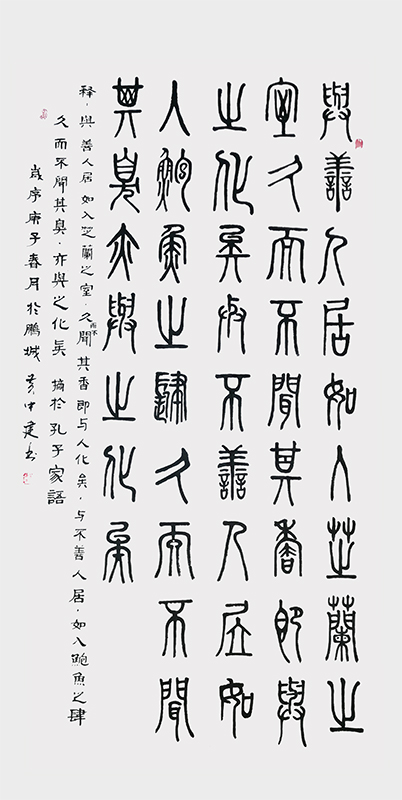 與善人居如入芝蘭之
室久而不聞其香即與
之化矣与不善人居如
入鮑魚之肆久而不聞
其臭亦與之化矣
释，與善人居如入芝蘭之室，久而不聞其香即与人化矣，与不善人居，如入鮑魚之肆
久而不聞其臭，亦與之化矣 摘於孔子家語
歲序庚子春月於鵬城 黄中建书